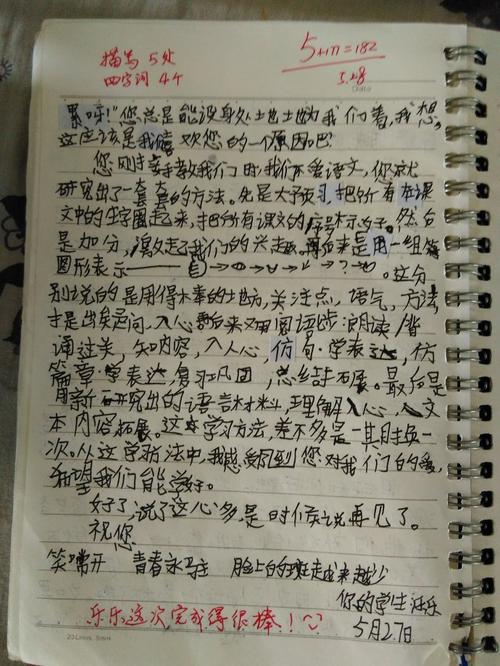 描写 5处
四字词 4个
5+m=182
5.28
Date
累呀!"您总是能设身处地地为我们着,我想,
这应该是我喜欢您的一个原因吧
您刚接手教我们时,我们不爱语文,你就
研究出了一套套的方法。先是大预习,把所有在课
文中的生字圈起来,把所有课文的序号标示好。然后
是加分,激起了我们的兴趣。再后来是用一组
图形表示
这分
别说的是用得棒的地方,关注点,语气,方法
才是出疑问,入心 后来又用阅读步:朗读/背
诵过关,知内容,入人心,仿句·学表达,仿
篇章·学表达,复习巩固,总结拓展。最后是
用新研究出的语言材料,理解入心,入文
本内容拓展。这本学习方法,差不多是一其月换一
次。从这学法中,我感受到您对我们的爱,
希望我们能学好。
好了,说了这么多,是时候说再见了。
祝您
笑常开 青春永驻 脸上的斑越来越少
你的学生 乐
5月27日
乐乐这次完成得很棒!